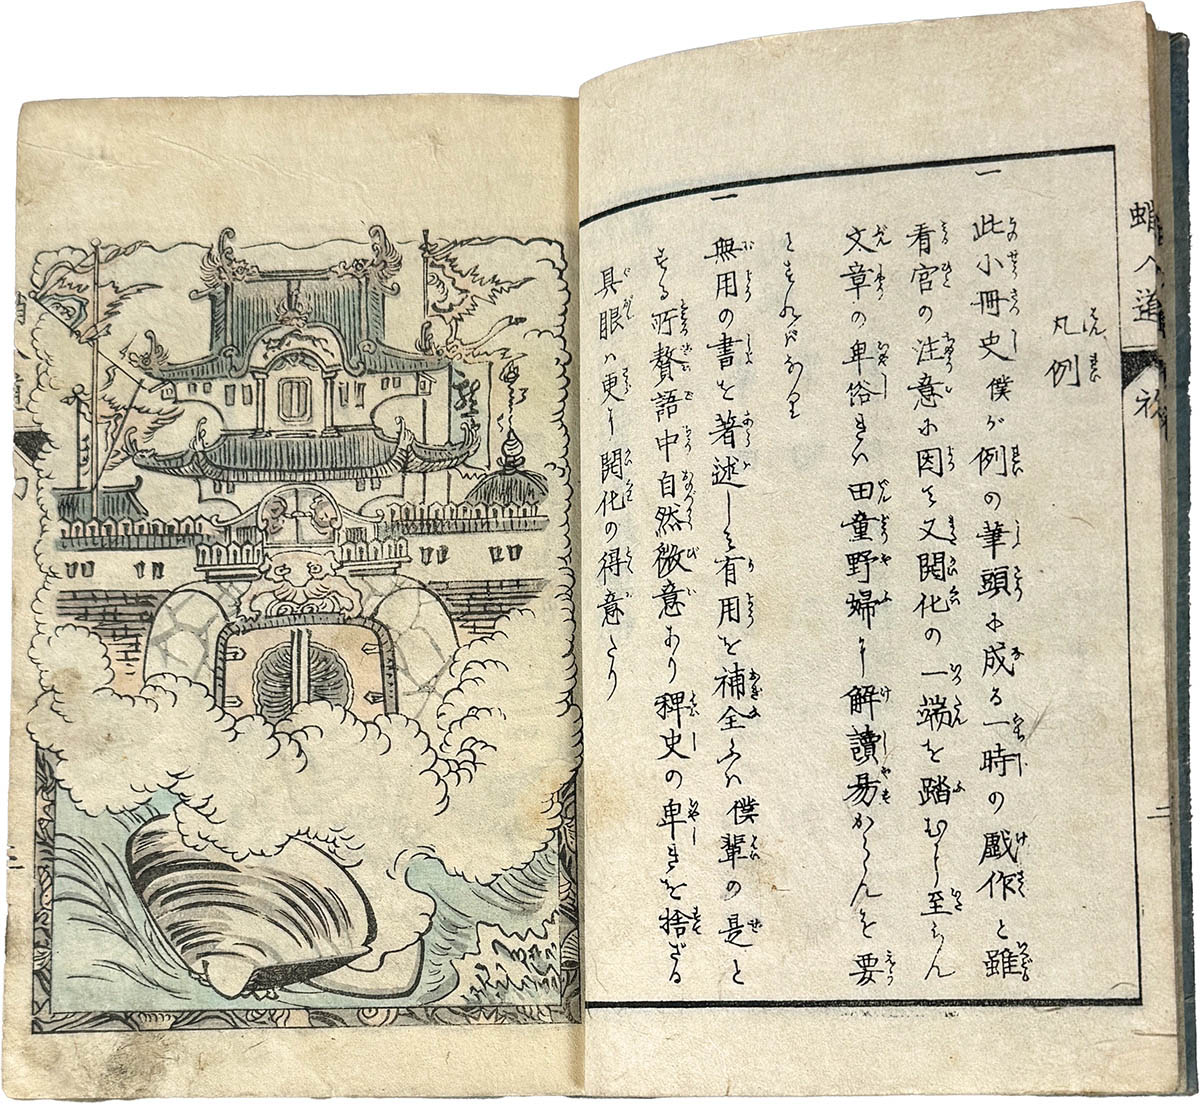 蛸入道 初
二
凡例
一 此小冊史僕が例の筆頭に成る一時の戯作と雖
看官の注意に因て又開化の一端を踏むに至らん
文章の卑俗きハ田童野婦に解讀易からんを要
とすれバなり
一 無用の書を著述して有用を補全ふハ僕輩の是と
する所贅語中自然微意あり稗史の卑きを捨ざる
具眼ハ更に開化の得意たり